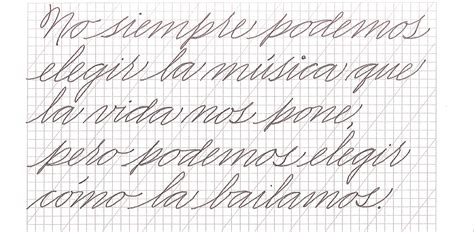 No siempre podemos
elegir la música que
la vida nos pone,
pero podemos elegir
cómo la bailamos.